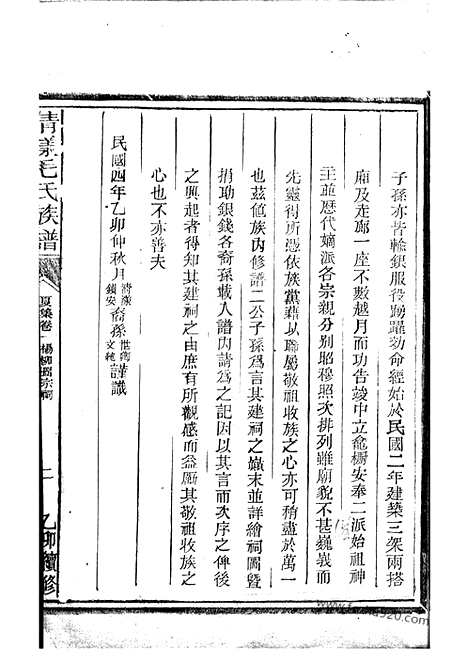 子孫亦皆輸銀服役踴躍効命經始於民國二年建築三架兩搭
廂及走廊一座不數越月而功告竣中立龕櫥安奉二派始祖神
主並歷代嫡派各宗親分別昭穆照次排列雖廟貌不甚巍峩而
先靈得所憑依族黨藉以聯屬敬祖收族之心亦可稍盡於萬一
也茲值族內修譜二公子孫爲言其建祠之巔末並詳繪祠圖暨
捐助銀錢各裔孫載入譜內請爲之記因以其言而次序之俾後
之興起者得知其建祠之由庶有所觀感而益勵其敬祖收族之
心也不亦善夫
民國四年乙卯仲秋月 裔孫 謹識
清漾毛氏族譜
夏集卷一 楊柳 宗祠
二
乙卯續修